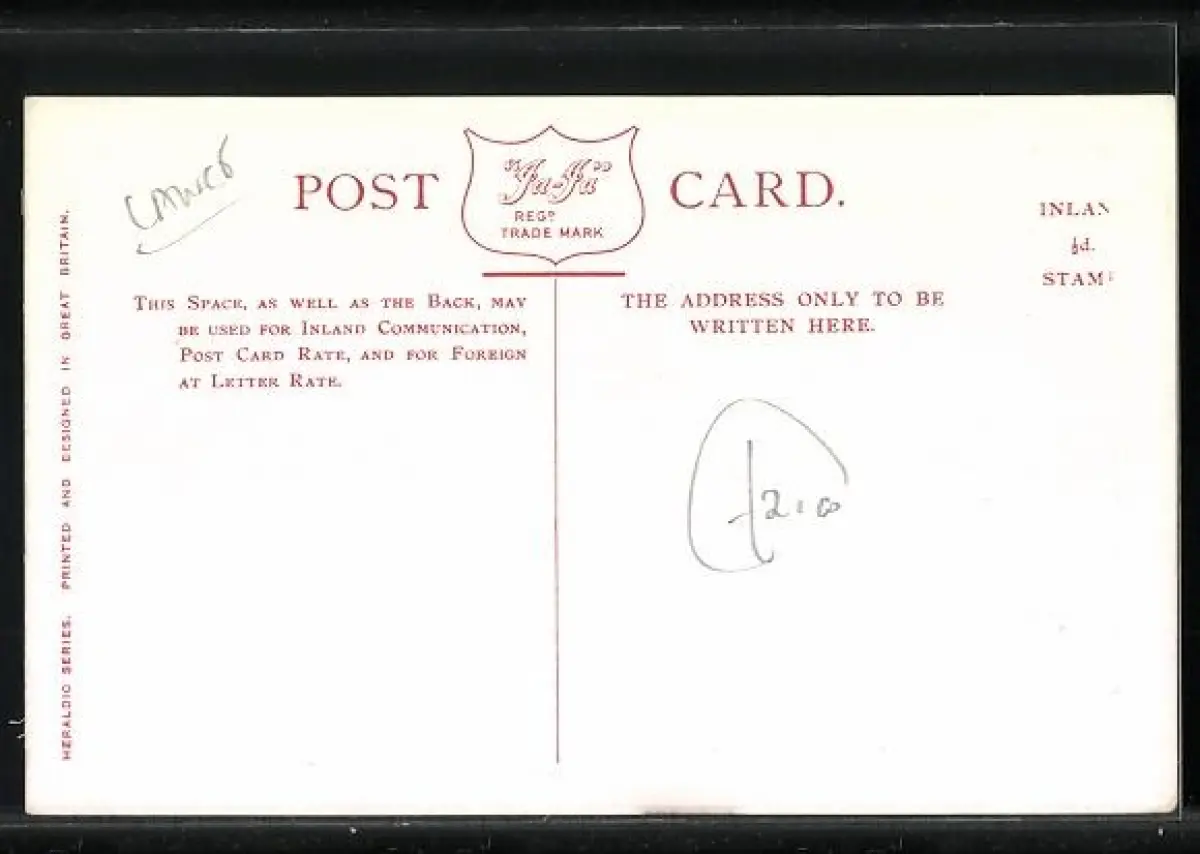 POST CARD.
"Ja-Ja"
REGD
TRADE MARK
INLAN
½d.
STAM
THIS SPACE, AS WELL AS THE BACK, MAY
BE USED FOR INLAND COMMUNICATION,
POST CARD RATE, AND FOR FOREIGN
AT LETTER RATE.
THE ADDRESS ONLY TO BE
WRITTEN HERE.
HERALDIC SERIES. PRINTED AND DESIGNED IN GREAT BRITAIN.